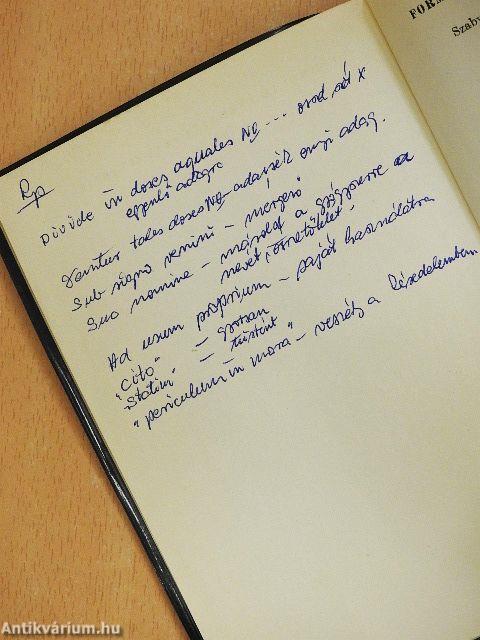 FOR
Szabv
Rp
Divide in doses aquales No ... oszd szét x
egyenlő adagra
Dentur tales doses No – adassék ennyi adag.
Sub signo veneni – mérgező
Suo nomine – másold a gyógyszerre a
nevét, összetételét.
Ad usum proprium – saját használatra
"Cito" – gyorsan
"Statim" – tüstént
"periculum in mora" – veszély a késedelemben
Antikvárium.hu